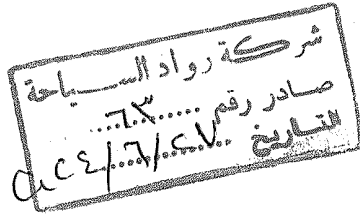 شركة رواد السياحة
صادر رقم ...٦٣...
التاريخ ٢٠٢٤/٦/٢٧